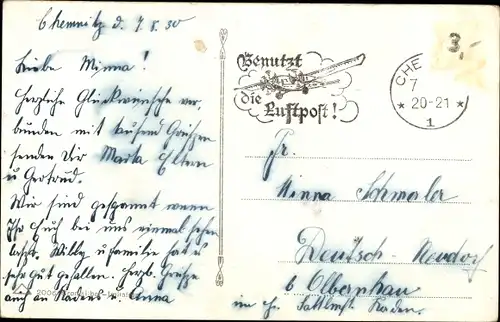 Chemnitz d. 7.8.30
Liebe Minna!
Herzliche Glückwünsche ver,
binden mit tausend Grüßen
senden Dir Marta Eltern
u Gertrud.
Wir sind gespannt wenn
Ihr Euch bei uns einmal sehen
laßt. Willy u Familie hat es
sehr gut gefallen. Herzl. Grüße
auch an Kadens u Anna
Benutzt
die
Luftpost!
CHE
7
* 20-21 *
1
3,-
Fr.
Minna Schmerler
Deutsch-Neudorf
b Olbernhau
Kaden.